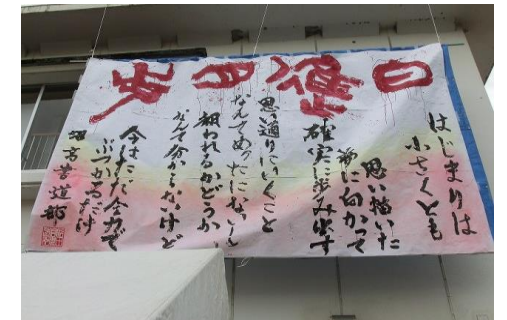 日進月歩
はじまりは
小さくとも
思い描いた
夢に向かって
確実に歩み出す
思い通りにいくこと
なんてめったにないし
報われるかどうか
なんて分からないけど
今はただ全力で
ぶつかるだけ
高書道部